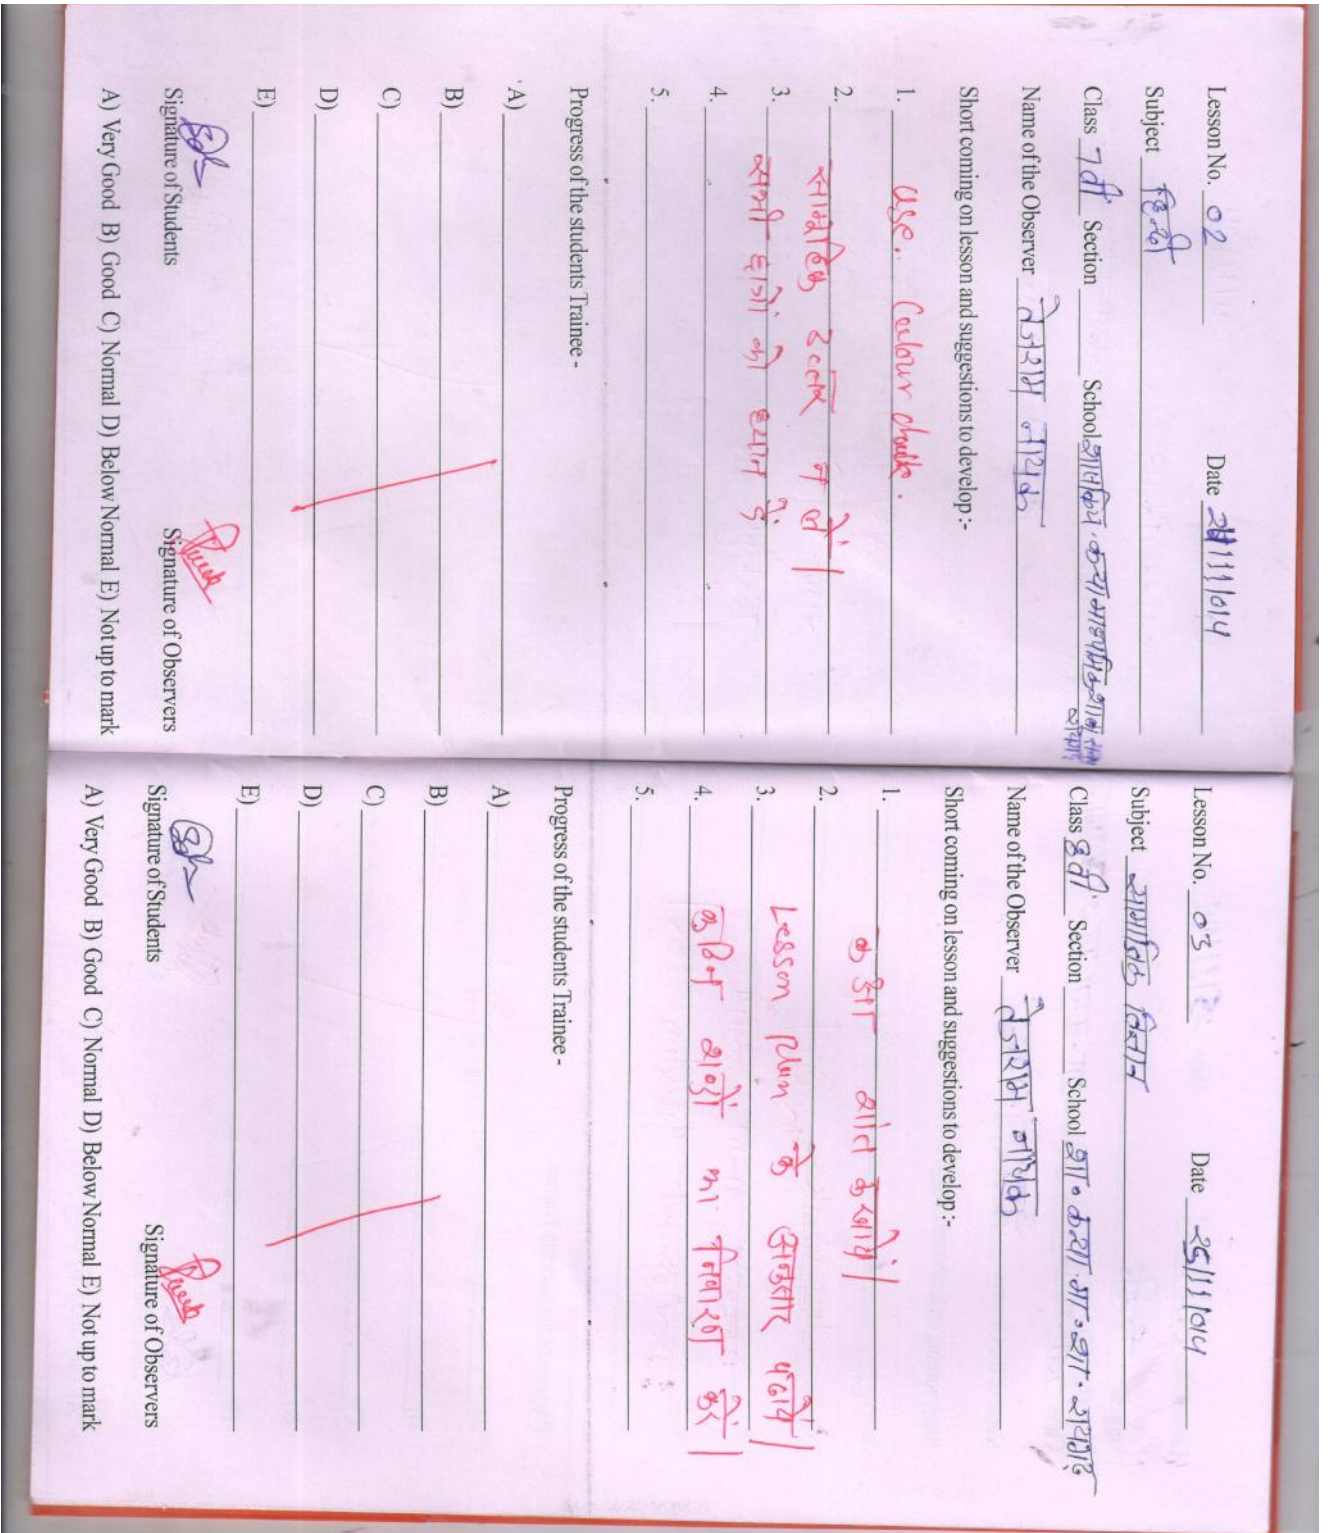 Lesson No. 02 Date 24/11/014
Subject हिन्दी
Class 7वीं Section School शासकिय कन्या माध्यमिक शाला
Name of the Observer तेजराम नायक
Short coming on lesson and suggestions to develop :-
1. use. Colour chalk.
2. सामूहिक उत्तर न लें।
3. सभी छात्रों को ध्यान दें
4.
5.
Progress of the students Trainee -
A)
B)
C)
D)
E)
Signature of Students Signature of Observers
A) Very Good B) Good C) Normal D) Below Normal E) Not up to mark
Lesson No. 03 Date 25/11/014
Subject सामाजिक विज्ञान
Class 8वीं Section School शा० कन्या मा० शा० रायगढ़
Name of the Observer तेजराम नायक
Short coming on lesson and suggestions to develop :-
1. कक्षा शांत करायें।
2. Lesson plan के अनुसार पढायें।
3. कठिन शब्दों का निवारण करें।
4.
5.
Progress of the students Trainee -
A)
B)
C)
D)
E)
Signature of Students Signature of Observers
A) Very Good B) Good C) Normal D) Below Normal E) Not up to mark